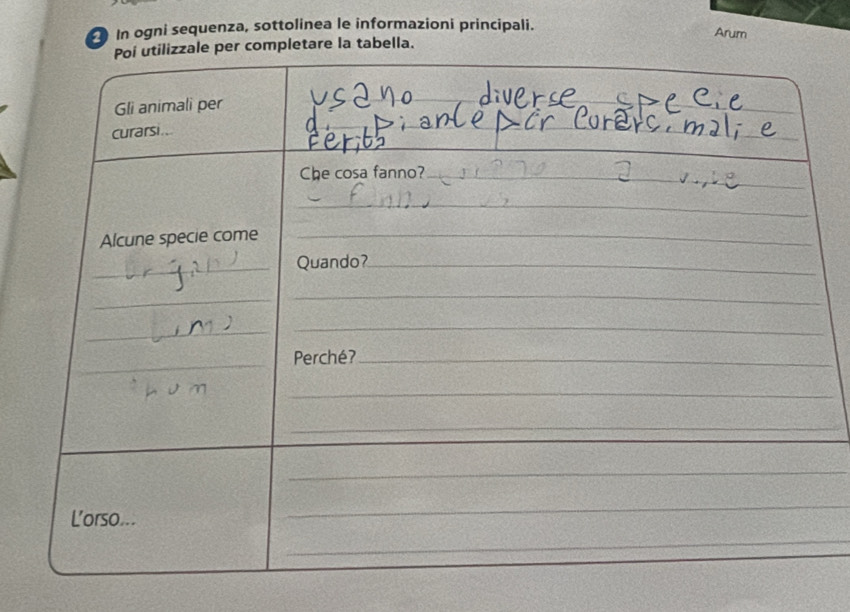 2 In ogni sequenza, sottolinea le informazioni principali.
Poi utilizzale per completare la tabella.
Arum
Gli animali per
curarsi...
usano diverse specie
di piante per curarsi mali e
ferite
Alcune specie come
origano
timo
arum
Che cosa fanno?
Quando?
Perché?
L'orso...